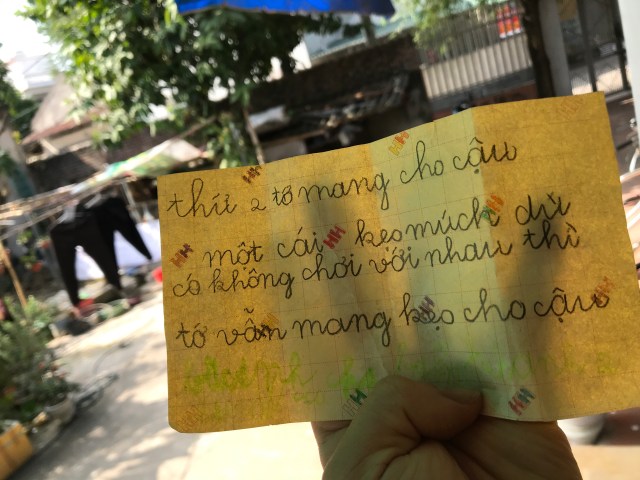 thứ 2 tớ mang cho cậu
một cái kẹo múch dù
có không chơi với nhau thì
tớ vẫn mang kẹo cho cậu